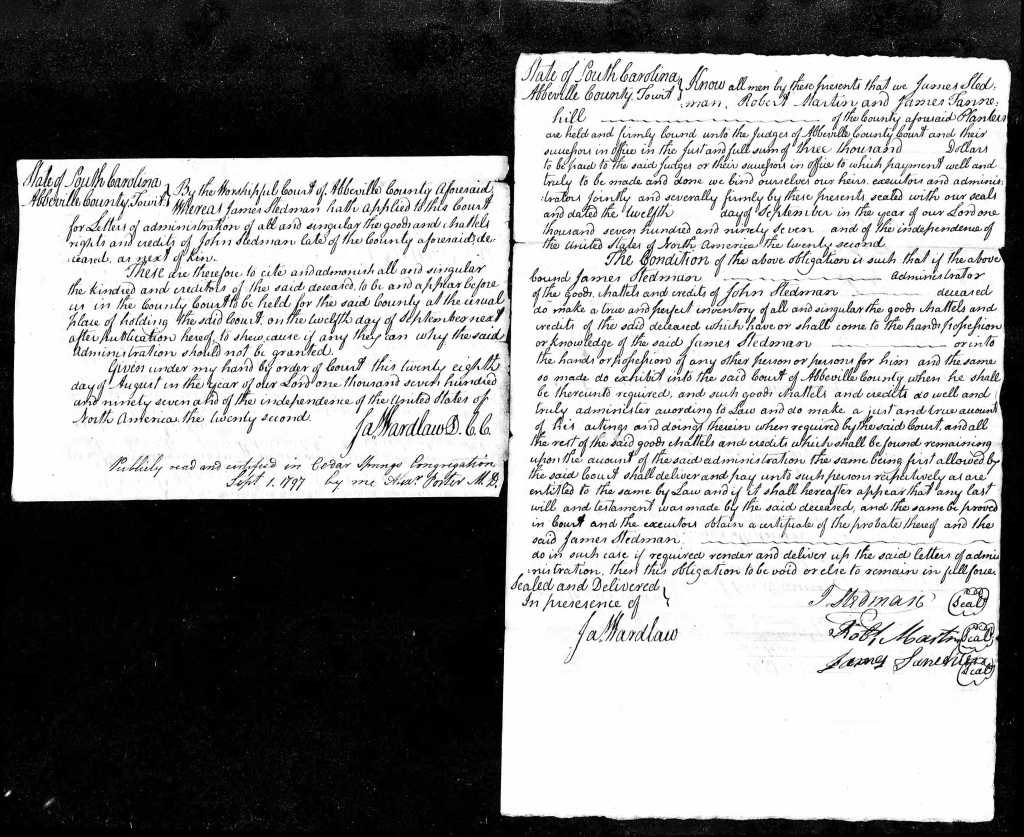 State of South Carolina
Abbeville County, Towit
By the Worshippul Court of Abbeville County Aforesaid
Whereas James Stedman hath applied to this Court
for Letters of administration of all and singular the goods and chattels
rights and credits of John Stedman late of the County aforesaid, de-
ceased, as next of kin.
These are therefore to cite and admonish all and singular
the kindred and creditors of the said deceased, to be and appear before
us in the County Court to be held for the said County at the usual
place of holding the said Court, on the twelfth day of September next
after publication hereof, to shew cause if any they can why the said
administration should not be granted.
Given under my hand by order of Court this twenty eighth
day of August in the year of our Lord one thousand seven hundred
and ninety seven and of the independence of the United States of
North America the twenty second.
Ja. Wardlaw D. C. C.
Publicly read and certified in Cedar Springs Congregation
Sept 1. 1797 by me Alexr. Porter
State of South Carolina
Abbeville County, Towit
Know all men by these presents that we James Sted-
man, Robert Martin and James Tanne-
hill of the County aforesaid Planters
are held and firmly bound unto the Judges of Abbeville County Court and their
successors in office in the just and full sum of three thousand Dollars
to be paid to the said Judges or their successors in office to which payment well and
truly to be made and done we bind ourselves our heirs, executors and adminis-
trators jointly and severally firmly by these presents sealed with our seals
and dated the twelfth day of September in the year of our Lord one
thousand seven hundred and ninety seven and of the independence of
the United States of North America the twenty second
The Condition of the above obligation is such that if the above
bound James Stedman administrator
of the Goods, chattels and credits of John Stedman deceased
do make a true and perfect inventory of all and singular the goods chattels and
credits of the said deceased which have or shall come to the hands possession
or knowledge of the said James Stedman or into
the hands or possession of any other person or persons for him and the same
so made do exhibit into the said Court of Abbeville County when he shall
be thereunto required, and such goods chattels and credits do well and
truly administer according to Law and do make a just and true account
of his actings and doings therein when required by the said Court, and all
the rest of the said goods chattels and credits which shall be found remaining
upon the account of the said administration the same being first allowed by
the said Court shall deliver and pay unto such persons respectively as are
entitled to the same by Law and if it shall hereafter appear that any last
will and testament was made by the said deceased, and the same be proved
in Court and the executors obtain a certificate of the probate thereof and the
said James Stedman
do in such case if required render and deliver up the said letters of admi-
nistration, then this obligation to be void or else to remain in full force
Sealed and Delivered
In presence of
Ja. Wardlaw
J Stedman Seal
Robt Martin Seal
James Seal